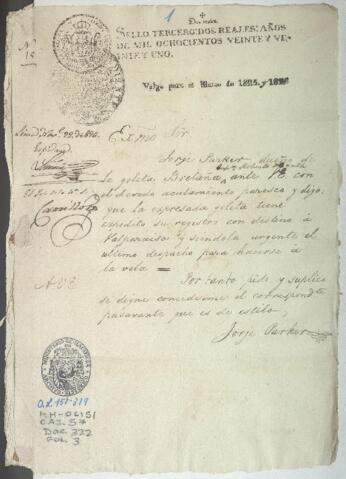 1
SELLO TERCERO: DOS REALES: AÑOS
DE MIL OCHOCIENTOS VEINTE Y VE-
INTE Y UNO.
Valga para el Bienio de 1825, y 1826
Nº
Exmo Sor
Jorje Parker dueño de
la goleta Bretaña, ante VE con
el devido acatamiento paresco y digo:
que la expresada goleta tiene
expedito su registro con destino á
Valparaiso; y siendola urgente el
ultimo despacho para hacerse á
la vela =
A V.E.
Por tanto pide y suplica
se digne concederme el correspondte
pasavante que es de estilo,
Jorje Parker
O.L. 151-319
MH-O6151
CAJ. 57
DOC. 332
FOL. 3